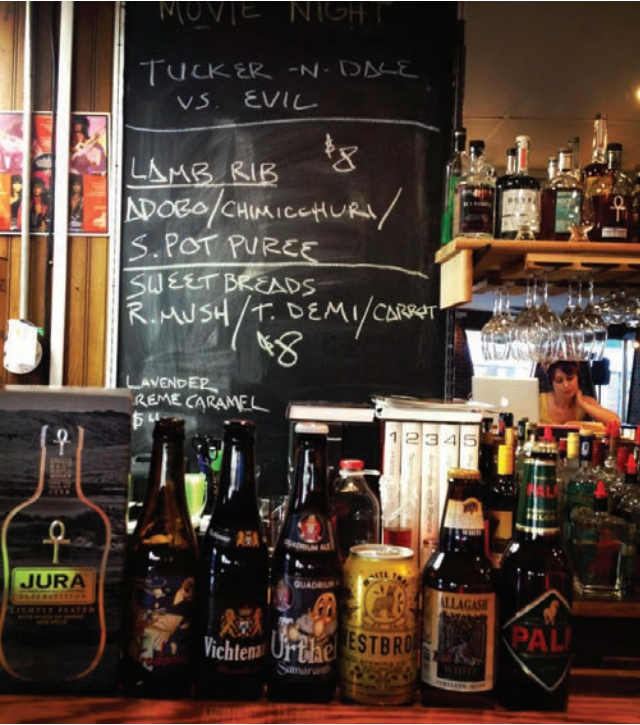 MOVIE NIGHT
TUCKER -N- DALE
VS. EVIL
LAMB RIB $8
ADOBO/CHIMICCHURI/
S. POT PUREE
SWEETBREADS
R. MUSH/T. DEMI/CARROT
$8
LAVENDER
CREME CARAMEL
$4
1 2 3 4 5
JURA
SUPERSTITION
LIGHTLY PEATED
QUADRIUM ALE
QUADRIUM
Vichtenaa
Urthel
Samaranth
WHITE TH
WESTBRO
WHITE
ALLAGASH
WHITE
PALM
PALM